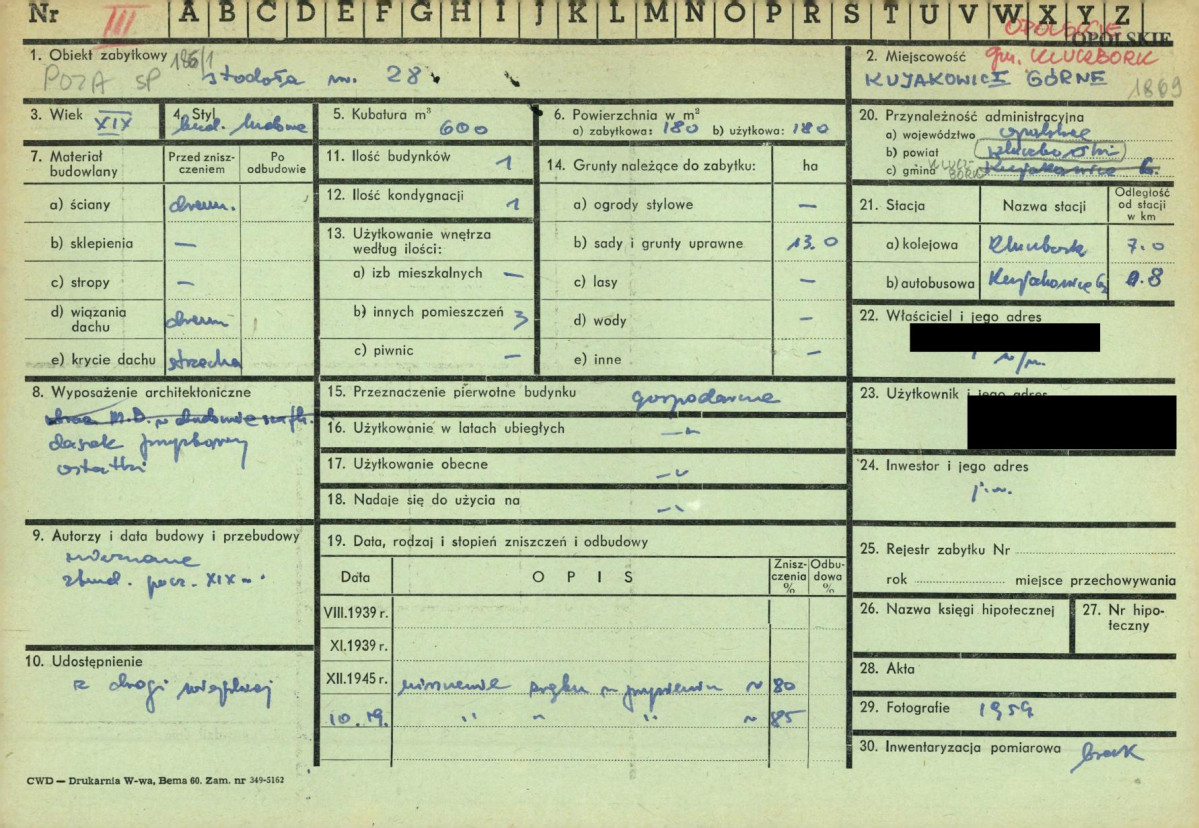 Nr III A B C D E F G H I J K L M N O P R S T U V W X Y Z
OPOLSKIE
OPOLSKIE
1. Obiekt zabytkowy 186/1
POZA SP stodoła nr. 28
2. Miejscowość gm. KLUCZBORK
KUJAKOWICE GÓRNE 1869
3. Wiek XIX
4. Styl
bud. ludowe
5. Kubatura m³
600
6. Powierzchnia w m²
a) zabytkowa: 180 b) użytkowa: 180
7. Materiał budowlany
Przed zniszczeniem
Po odbudowie
a) ściany drewn.
b) sklepienia —
c) stropy —
d) wiązania dachu drewn
e) krycie dachu strzecha
8. Wyposażenie architektoniczne
daszek przyzbowy
ostatki
9. Autorzy i data budowy i przebudowy
nieznane
zbud. pocz. XIX w.
10. Udostępnienie
z drogi wiejskiej
11. Ilość budynków 1
12. Ilość kondygnacji 1
13. Użytkowanie wnętrza według ilości:
a) izb mieszkalnych —
b) innych pomieszczeń 3
c) piwnic —
14. Grunty należące do zabytku: ha
a) ogrody stylowe —
b) sady i grunty uprawne 13.0
c) lasy —
d) wody —
e) inne —
15. Przeznaczenie pierwotne budynku gospodarcze
16. Użytkowanie w latach ubiegłych —"—
17. Użytkowanie obecne —"
18. Nadaje się do użycia na —"
19. Data, rodzaj i stopień zniszczeń i odbudowy
Data OPIS Zniszczenia % Odbudowa %
VIII.1939 r.
XI.1939 r.
XII.1945 r. niszczenie zrębu w przyziemiu ~ 80
10.19. " " " ~ 85
20. Przynależność administracyjna
a) województwo opolskie
b) powiat Kluczborski
c) gmina KLUCZBORK Kujakowice G.
21. Stacja Nazwa stacji Odległość od stacji w km
a) kolejowa Kluczbork 7.0
b) autobusowa Kujakowice G. 1.8
22. Właściciel i jego adres
w/m.
23. Użytkownik i jego adres
24. Inwestor i jego adres
j.w.
25. Rejestr zabytku Nr
rok miejsce przechowywania
26. Nazwa księgi hipotecznej
27. Nr hipoteczny
28. Akta
29. Fotografie 1959
30. Inwentaryzacja pomiarowa brak
CWD — Drukarnia W-wa, Bema 60. Zam. nr 349-5162